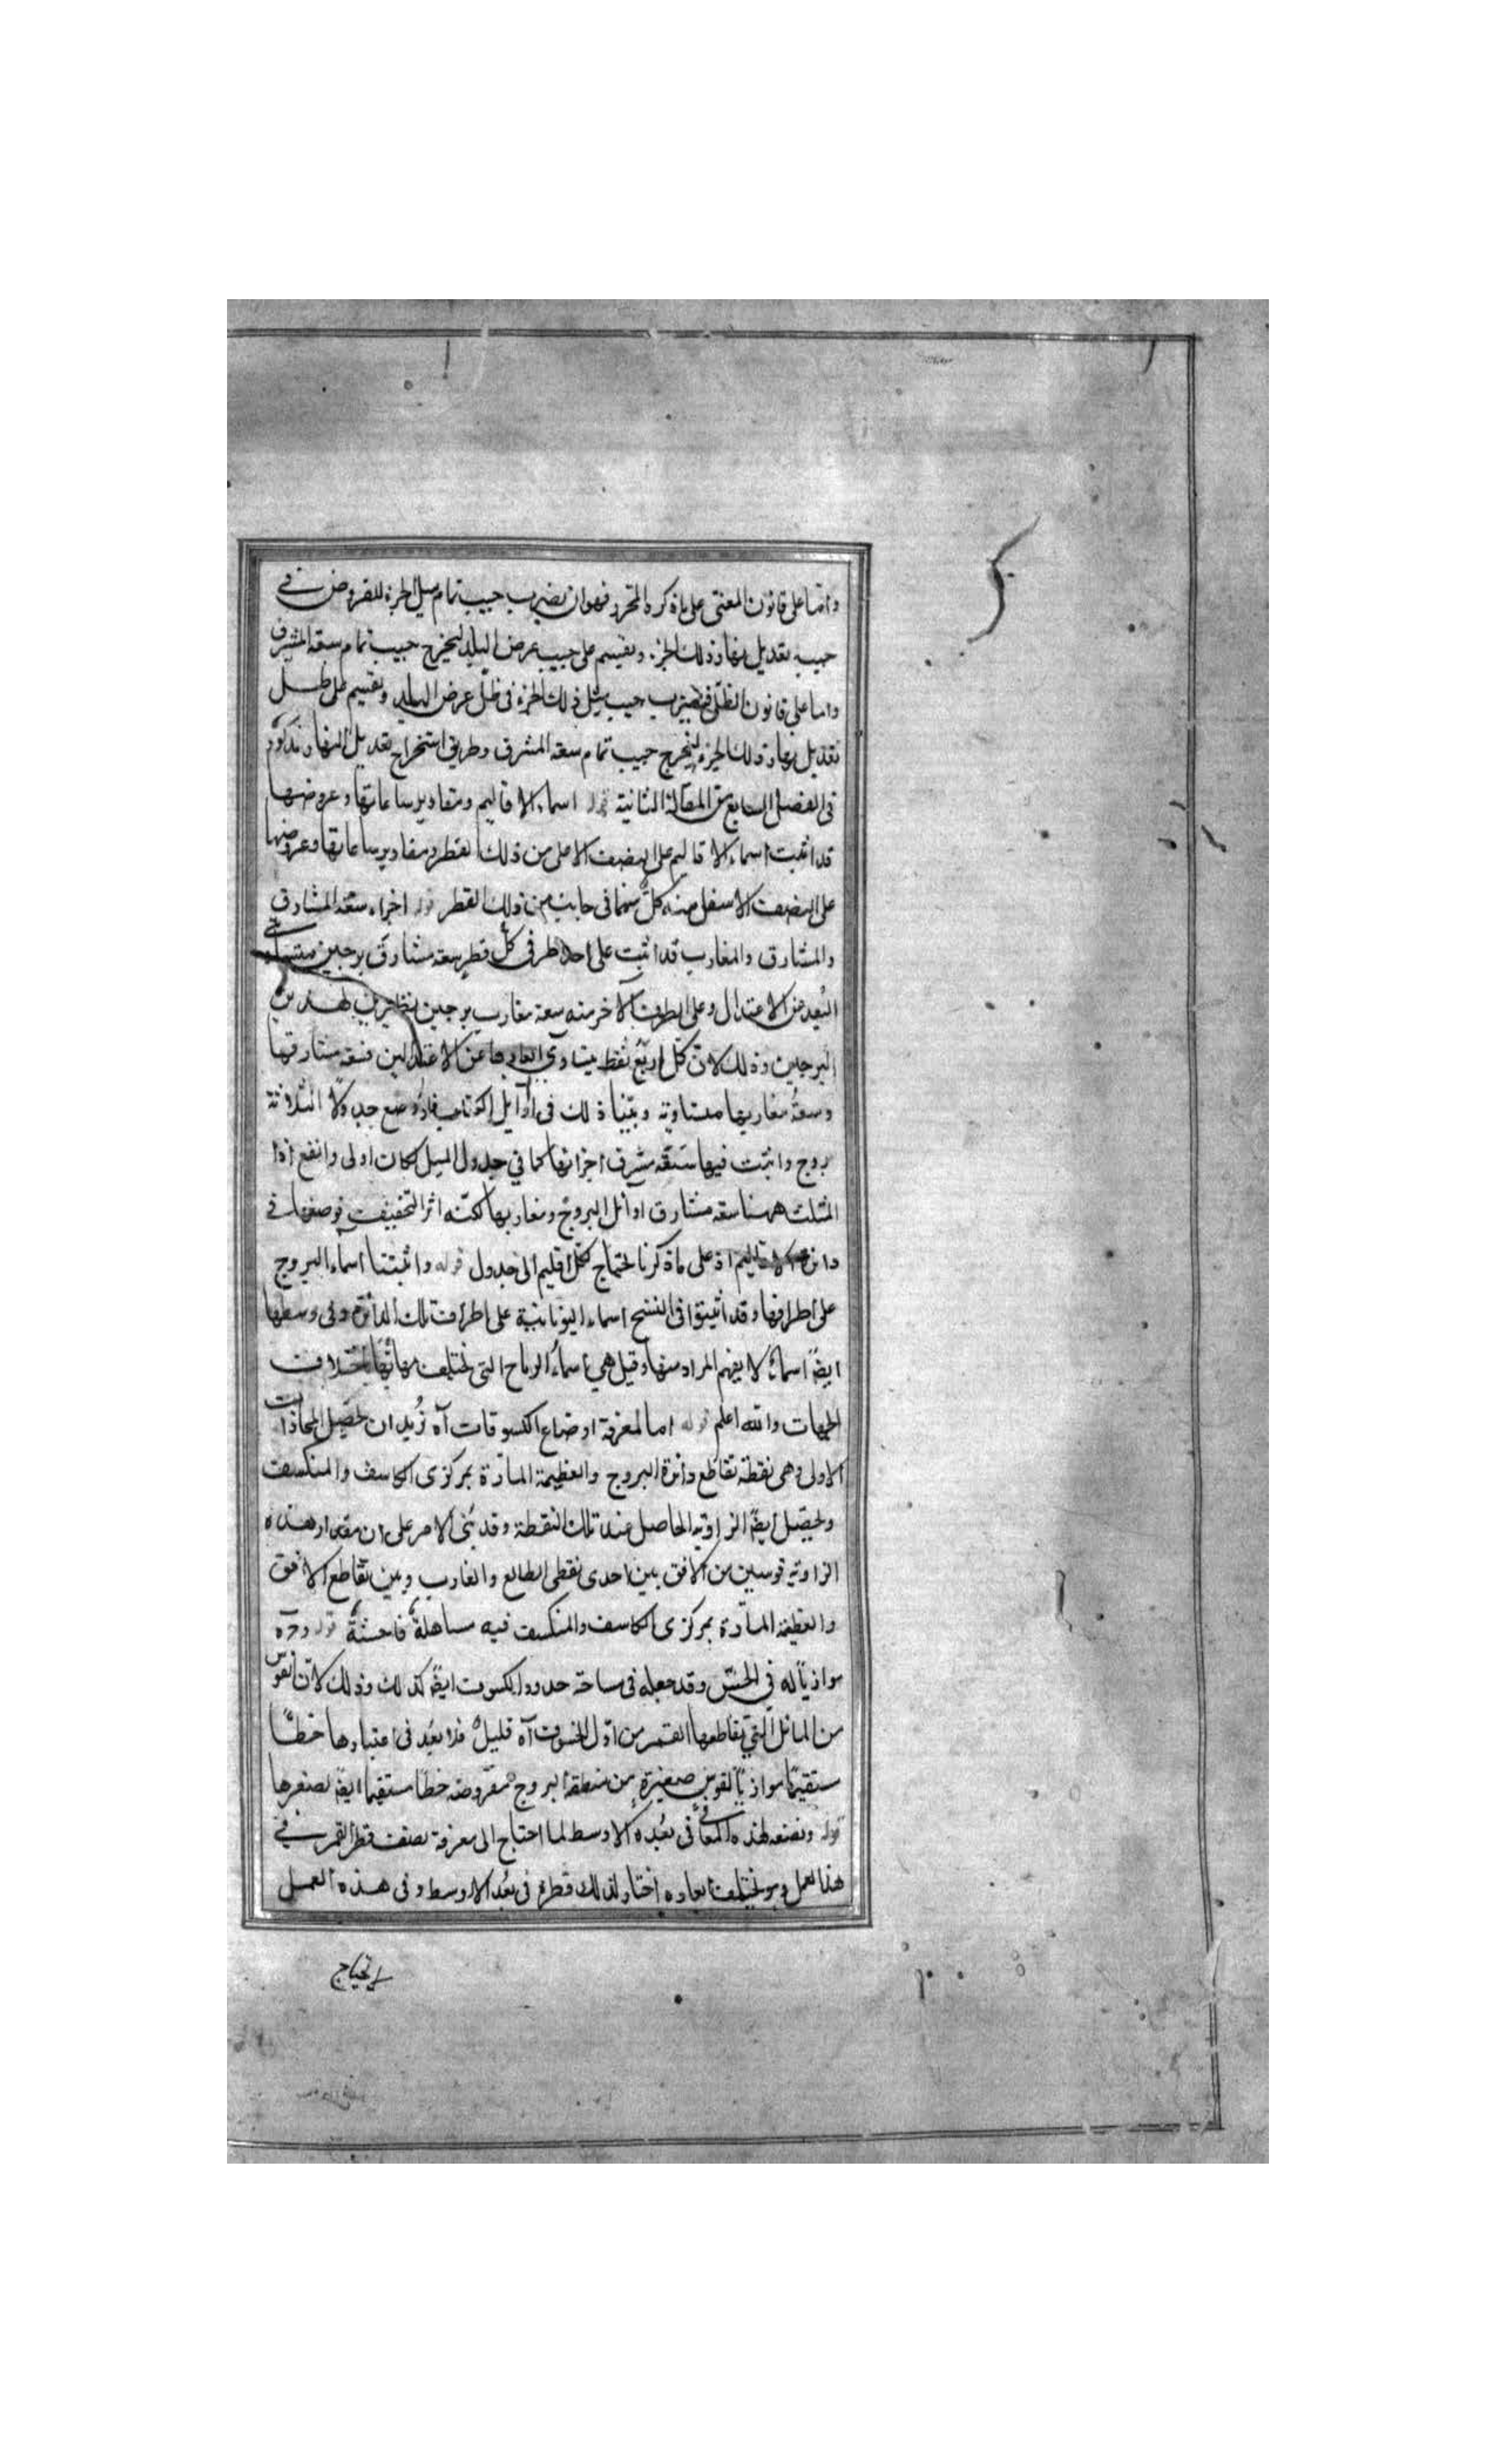 واما على قانون المغنى على ما ذكره المحرر فهو ان نضرب جيب تمام ميل الجزء المفروض في
جيب تعديل نهار ذلك الجزء ونقسم على جيب عرض البلد ليخرج جيب تمام سعة المشرق
واما على قانون الظلى فنضرب جيب ميل ذلك الجزء فى ظل عرض البلد ونقسم على ظل
تعديل نهار ذلك الجزء ليخرج جيب تمام سعة المشرق وطريق استخراج تعديل النهار مذكور
فى الفصل السابع من المقالة الثانية قوله اسماء الاقاليم ومقادير ساعاتها وعروضها
قد اثبت اسماء الاقاليم على النصف الاعلى من ذلك القطر ومقادير ساعاتها وعروضها
على النصف الاسفل منه كل منها فى جانب من ذلك القطر قوله اجزاء سعة المشارق
والمشارق والمغارب قد اثبت على احد طرفى كل قطر سعة مشارق برجين متساوى
البعد عن الاعتدال وعلى الطرف الآخر منه سعة مغارب برجين نظيرين لهذين
البرجين وذلك لان كل اربع نقط يتساوى ابعادها عن الاعتدالين فسعة مشارقها
وسعة مغاربها متساوية وبينا ذلك فى اوائل الكتاب فلو وضع جدولا لثلاثة
بروج واثبت فيها سعة مشرق اجزائها كما في جدول الميل لكان اولى وانفع اذا
المثلث ههنا سعة مشارق اوائل البروج ومغاربها لكنه اثر التخفيف فوضعها في
دائرة الاقاليم اذ على ما ذكرنا يحتاج كل اقليم الى جدول قوله واثبتنا اسماء البروج
على اطرافها وقد اثبتوا فى النسخ اسماء اليونانية على اطراف تلك الدائرة وفى وسطها
ايضا اسماء لا يفهم المراد منها وقيل هي اسماء الرياح التى تختلف مهابها باختلاف
الجهات والله اعلم قوله اما لمعرفة اوضاع الكسوفات آه نريد ان نحصل المحاذات
الاولى وهى نقطة تقاطع دائرة البروج والعظيمة المارة بمركزى الكاسف والمنكسف
ونحصل ايضا الزاوية الحاصل عند تلك النقطة وقد بنى الامر على ان مقدار هذه
الزاوية قوسين من الافق بين احدى نقطى الطالع والغارب وبين تقاطع الافق
والعظيمة المارة بمركزى الكاسف والمنكسف فيه مساهلة فاحشة قوله و د ه
موازيا له في الحس وقد جعله فى ساحة حدود الكسوف ايضا كذلك وذلك لان القوس
من المائل التي يقاطعها القمر من اول الخسوف آه قليل فلا بعد فى اعتبارها خطا
مستقيما موازيا لقوس صغيرة من منطقة البروج مفروضة خطا مستقيما ايضا لصغرها
قوله ونصنعه لهذه المعانى فى بعده الاوسط لما احتاج الى معرفة نصف قطر القمر في
هذا العمل وهو يختلف ابعاده اختار لذلك قطره فى بعد الاوسط وفى هذه العمل
لا يحتاج